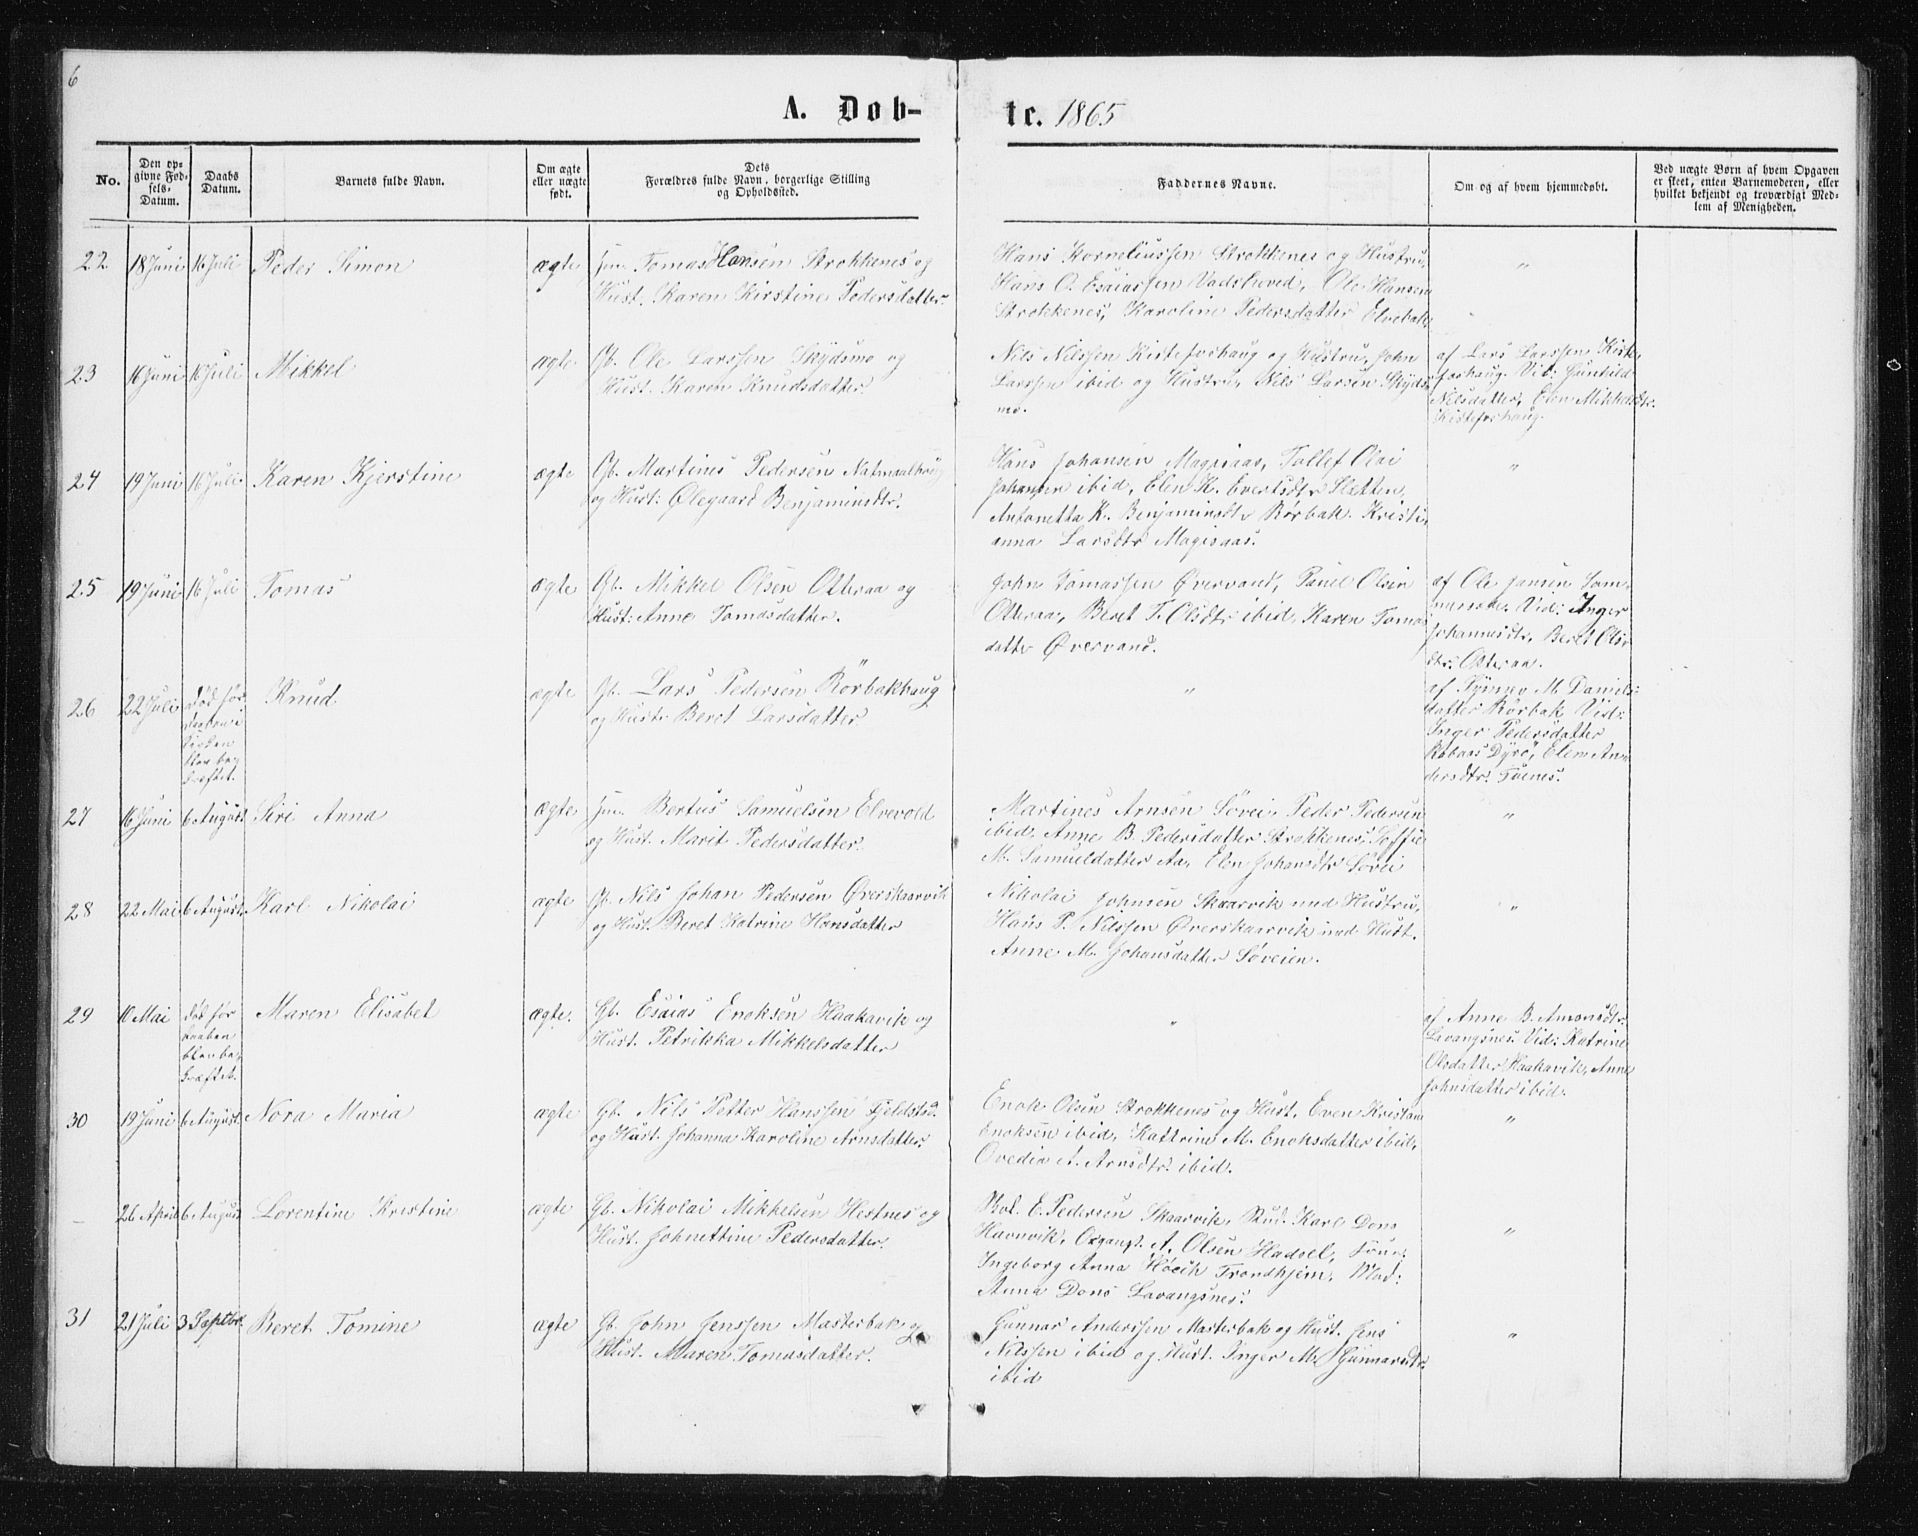 6
A. Døb-
te. 1865
No.
Den op-
givne Fød-
sels-
Datum.
Daabs
Datum.
Barnets fulde Navn.
Om ægte
eller uægte
født.
Dets
Forældres fulde Navn, borgerlige Stilling
og Opholdssted.
Faddernes Navne.
Om og af hvem hjemmedøbt.
Ved uægte Børn af hvem Opgaven
er skeet, enten Barnemoderen, eller
hvilket bekjendt og troværdigt Med-
lem af Menigheden.
22 18 Juni 16 Juli Peder Simon ægte
Tomas Hansen Strokkenes og
Hust. Karen Kirstine Pedersdatter.
Hans Korneliussen Strokkenes og Hustru,
Hans O. Esaiassen Vadshoved, Ole Hansen
Strokkenes, Karoline Pedersdatter Elvebak,
"
23 16 Juni 16 Juli Mikkel ægte
Gb. Ole Larssen Skydsmo og
Hust. Karen Knudsdatter.
Nils Nilssen Kisteforhaug og Hustru, John
Larssen ibid og Hustru, Nils Larsen Skyds-
mo.
af Lars Larssen Kiste-
forhaug. Vid: Gunhild
Nilsdatter, Elen Mikkelsdtr.
Kisteforhaug.
24 19 Juni 16 Juli Karen Kjerstine ægte
Gb. Martines Pedersen
og Hust: Ølegaard Benjaminsdtr.
Hans Johansen Magisaas, Tollef Olai
Johansen ibid, Elen K. Evertsdtr Sletten,
Antonetta K. Benjaminsdtr Rørbak. Kristi-
anna Larsdtr Magisaas.
"
25 19 Juni 16 Juli Tomas ægte
Gb. Mikkel Olsen Otteraa og
Hust: Anne Tomasdatter.
John Tomassen Øvervand, Paul Olsen
Otteraa, Beret T. Olsdtr ibid, Karen Tomas
datter Øvervand.
af Ole Jansen
Vid: Inger
Johannesdtr, Beret Ols-
dtr. Otteraa.
26 22 Juli
død før
daaben i
Kirken
blev be-
kræftet.
Knud ægte
Gb. Lars Pedersen Rørbakhaug
og Hustr. Beret Larsdatter
"
af Synnev M. Daniels-
datter Rørbak Vid:
Inger Pedersdatter
Dyrø, Elen An-
dersdtr.
27 16 Juni 6 August Siri Anna ægte
Bertus Samuelsen Elvevold
og Hust. Marit Pedersdatter.
Martines Arnsen Søvei, Peder Pedersen
ibid, Anne B Pedersdatter Strokkenes, Soffie
M. Samueldatter Aa, Elen Johansdtr Søvei
"
28 22 Mai 6 August Karl Nikolai ægte
Gb. Nils Johan Pedersen Øverskaarvik
og Hust. Beret Katrine Hansdatter
Nikolai Johnsen Skaarvik med Hustru,
Hans P. Nilssen Øverskaarvik med Hust.
Anne M. Johansdatter Søveien.
"
29 10 Mai
død før
daaben
blev be-
kræftet.
Maren Elisabet ægte.
Gb. Esaias Enoksen Haakavik og
Hust. Petrikka Mikkelsdatter
"
af Anne B. Amonsdtr.
Lavangsnes. Vid: Katrine
Olsdatter Haakavik, Anne
Johnsdatter ibid.
30 19 Juni 6 August Nora Maria ægte
Gb. Nils Petter Hanssen Fjeldstad
og Hust. Johanna Karoline Arnsdatter.
Enok Olsen Strokkenes og Hust. Even Kristian
Enoksen ibid, Kattrine M. Enoksdatter ibid,
Ovedia A. Arnsdtr. ibid.
"
- 26 April 6 August Lorentine Kristine ægte
Gb. Nikolai Mikkelsen Hestnes og
Hust. Johnettine Pedersdatter.
E. Pedersen Skaarvik, Stud. Karl Dons
Havnvik, Organst. A. Olsen Hadsel,
Ingeborg Anna Trondhjem, Mad:
Anna Dons Lavangsnes.
"
31 21 Juli 3 Septbr. Beret Tomine ægte
Gb. John Jenssen Masterbak og
Hust. Maren Tomasdatter.
Gunnar Anderssen Masterbak og Hust. Jens
Nilssen ibid og Hust. Inger M. Gunnarsdtr.
ibid
"